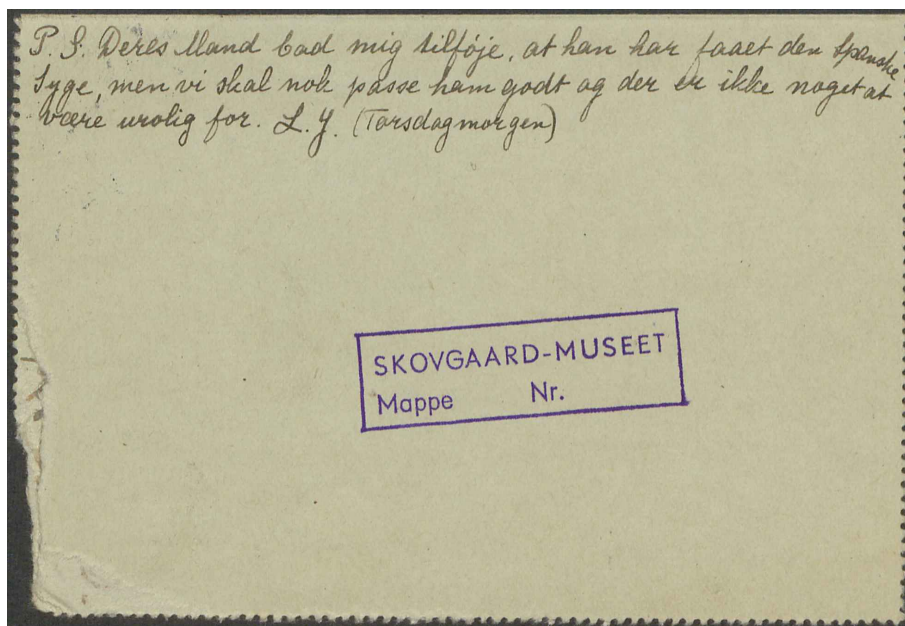 P. S. Deres Mand bad mig tilföje, at han har faaet den Spanske
Syge, men vi skal nok passe ham godt og der er ikke noget at
være urolig for. L. J. (Torsdagmorgen)
SKOVGAARD-MUSEET
Mappe Nr.